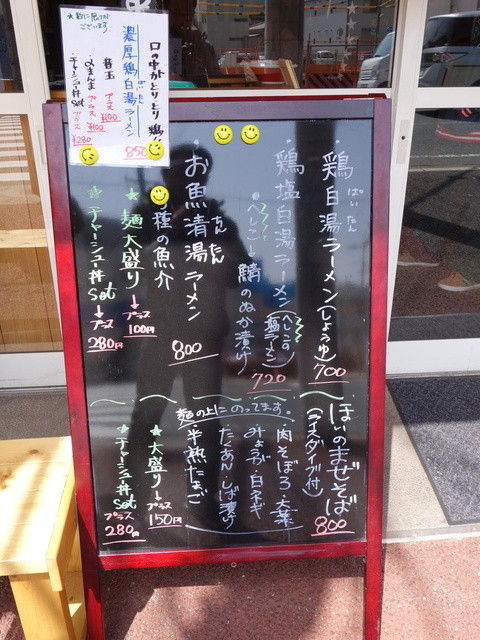 口の中がとりとり鶏
濃厚鶏白湯ラーメン
ぱいたん
850
替玉 プラス ¥100
めまんま プラス ¥100
・チャーシュー丼 set プラス ¥280
ございます。
・鶏白湯ラーメン(しょうゆ)
ぱいたん
700
・鶏塩白湯ラーメン(へしこの塩ラーメン)
720
へしこ→鯖のぬか漬け
・お魚清湯ラーメン
ちんたん
800
種の魚介
★麺大盛り→プラス100円
★チャーシュー丼 set→プラス280円
ほいのまぜそば
(ライスダイブ付)
800
麺の上にのってます。
・肉そぼろ
みょうが 白ネギ
たくあん しば漬け
半熟たまご
★大盛り→プラス150円
★チャーシュー丼 set プラス280円